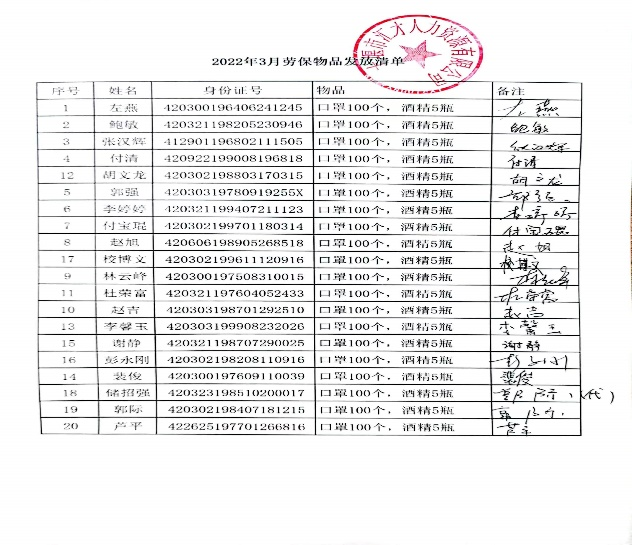 2022年3月劳保物品发放清单
江才人力资源有限公司
序号 姓名 身份证号 物品 备注
1 左燕 420300196406241245 口罩100个，酒精5瓶 左燕
2 鲍敏 420321198205230946 口罩100个，酒精5瓶 鲍敏
3 张汉辉 412901196802111505 口罩100个，酒精5瓶
4 付清 420922199008196818 口罩100个，酒精5瓶 付清
12 胡文龙 420302198803170315 口罩100个，酒精5瓶 胡文龙
5 郭强 42030319780919255X 口罩100个，酒精5瓶 郭强
6 李婷婷 420321199407211123 口罩100个，酒精5瓶 李婷婷
7 付宝琨 420302199701180314 口罩100个，酒精5瓶 付宝琨
8 赵旭 420606198905268518 口罩100个，酒精5瓶
17 校博文 420302199611120916 口罩100个，酒精5瓶 校博文
9 林云峰 420300197508310015 口罩100个，酒精5瓶 林云峰
11 杜荣富 420321197604052433 口罩100个，酒精5瓶 杜荣富
10 赵吉 420303198701292510 口罩100个，酒精5瓶 赵吉
13 李馨玉 420303199908232026 口罩100个，酒精5瓶 李馨玉
15 谢静 420321198707290025 口罩100个，酒精5瓶 谢静
16 彭永刚 420302198208110916 口罩100个，酒精5瓶 彭永刚
14 裴俊 420300197609110039 口罩100个，酒精5瓶 裴俊
18 储招强 420323198510200017 口罩100个，酒精5瓶 郭际（代）
19 郭际 420302198407181215 口罩100个，酒精5瓶 郭际
20 芦平 422625197701266816 口罩100个，酒精5瓶 芦平